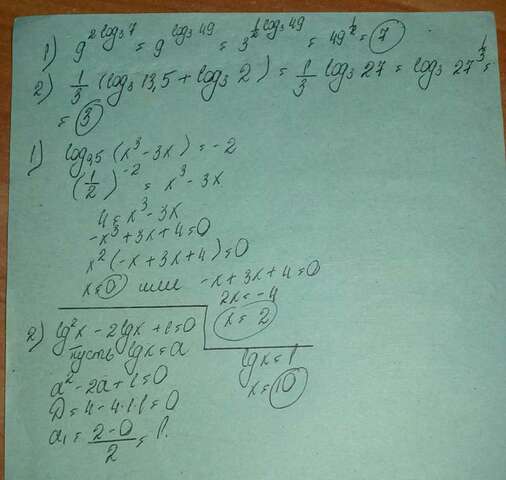 1) 9^{2 log_3 7} = 9^{log_3 49} = 3^{\frac{1}{2} log_3 49} = 49^{\frac{1}{2}} = 7
2) \frac{1}{3} (log_3 13,5 + log_3 2) = \frac{1}{3} log_3 27 = log_3 27^{\frac{1}{3}} =
= 3
1) log_{0,5} (x^3 - 3x) = -2
(\frac{1}{2})^{-2} = x^3 - 3x
4 = x^3 - 3x
-x^3 + 3x + 4 = 0
x^2 (-x + 3x + 4) = 0
x = 0 или -x + 3x + 4 = 0
2x = -4
x = 2
2) lg^2 x - 2 lg x + 1 = 0
пусть lg x = a
a^2 - 2a + 1 = 0
D = 4 - 4·1·1 = 0
a_1 = \frac{2-0}{2} = 1.
lg x = 1
x = 10